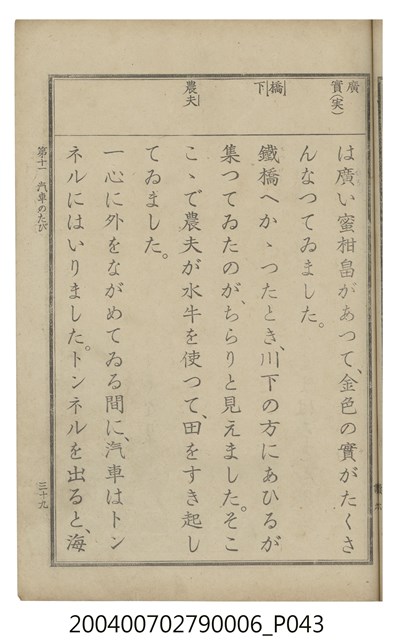 廣
實(実)
橋
下
農夫
は廣い蜜柑畠があつて、金色の實がたくさ
んなつてゐました。
鐵橋へかゝつたとき、川下の方にあひるが
集つてゐたのが、ちらりと見えました。そこ
こゝで農夫が水牛を使つて、田をすき起し
てゐました。
一心に外をながめてゐる間に、汽車はトン
ネルにはいりました。トンネルを出ると、海
第十一 汽車のたび
三十九
200400702790006_P043